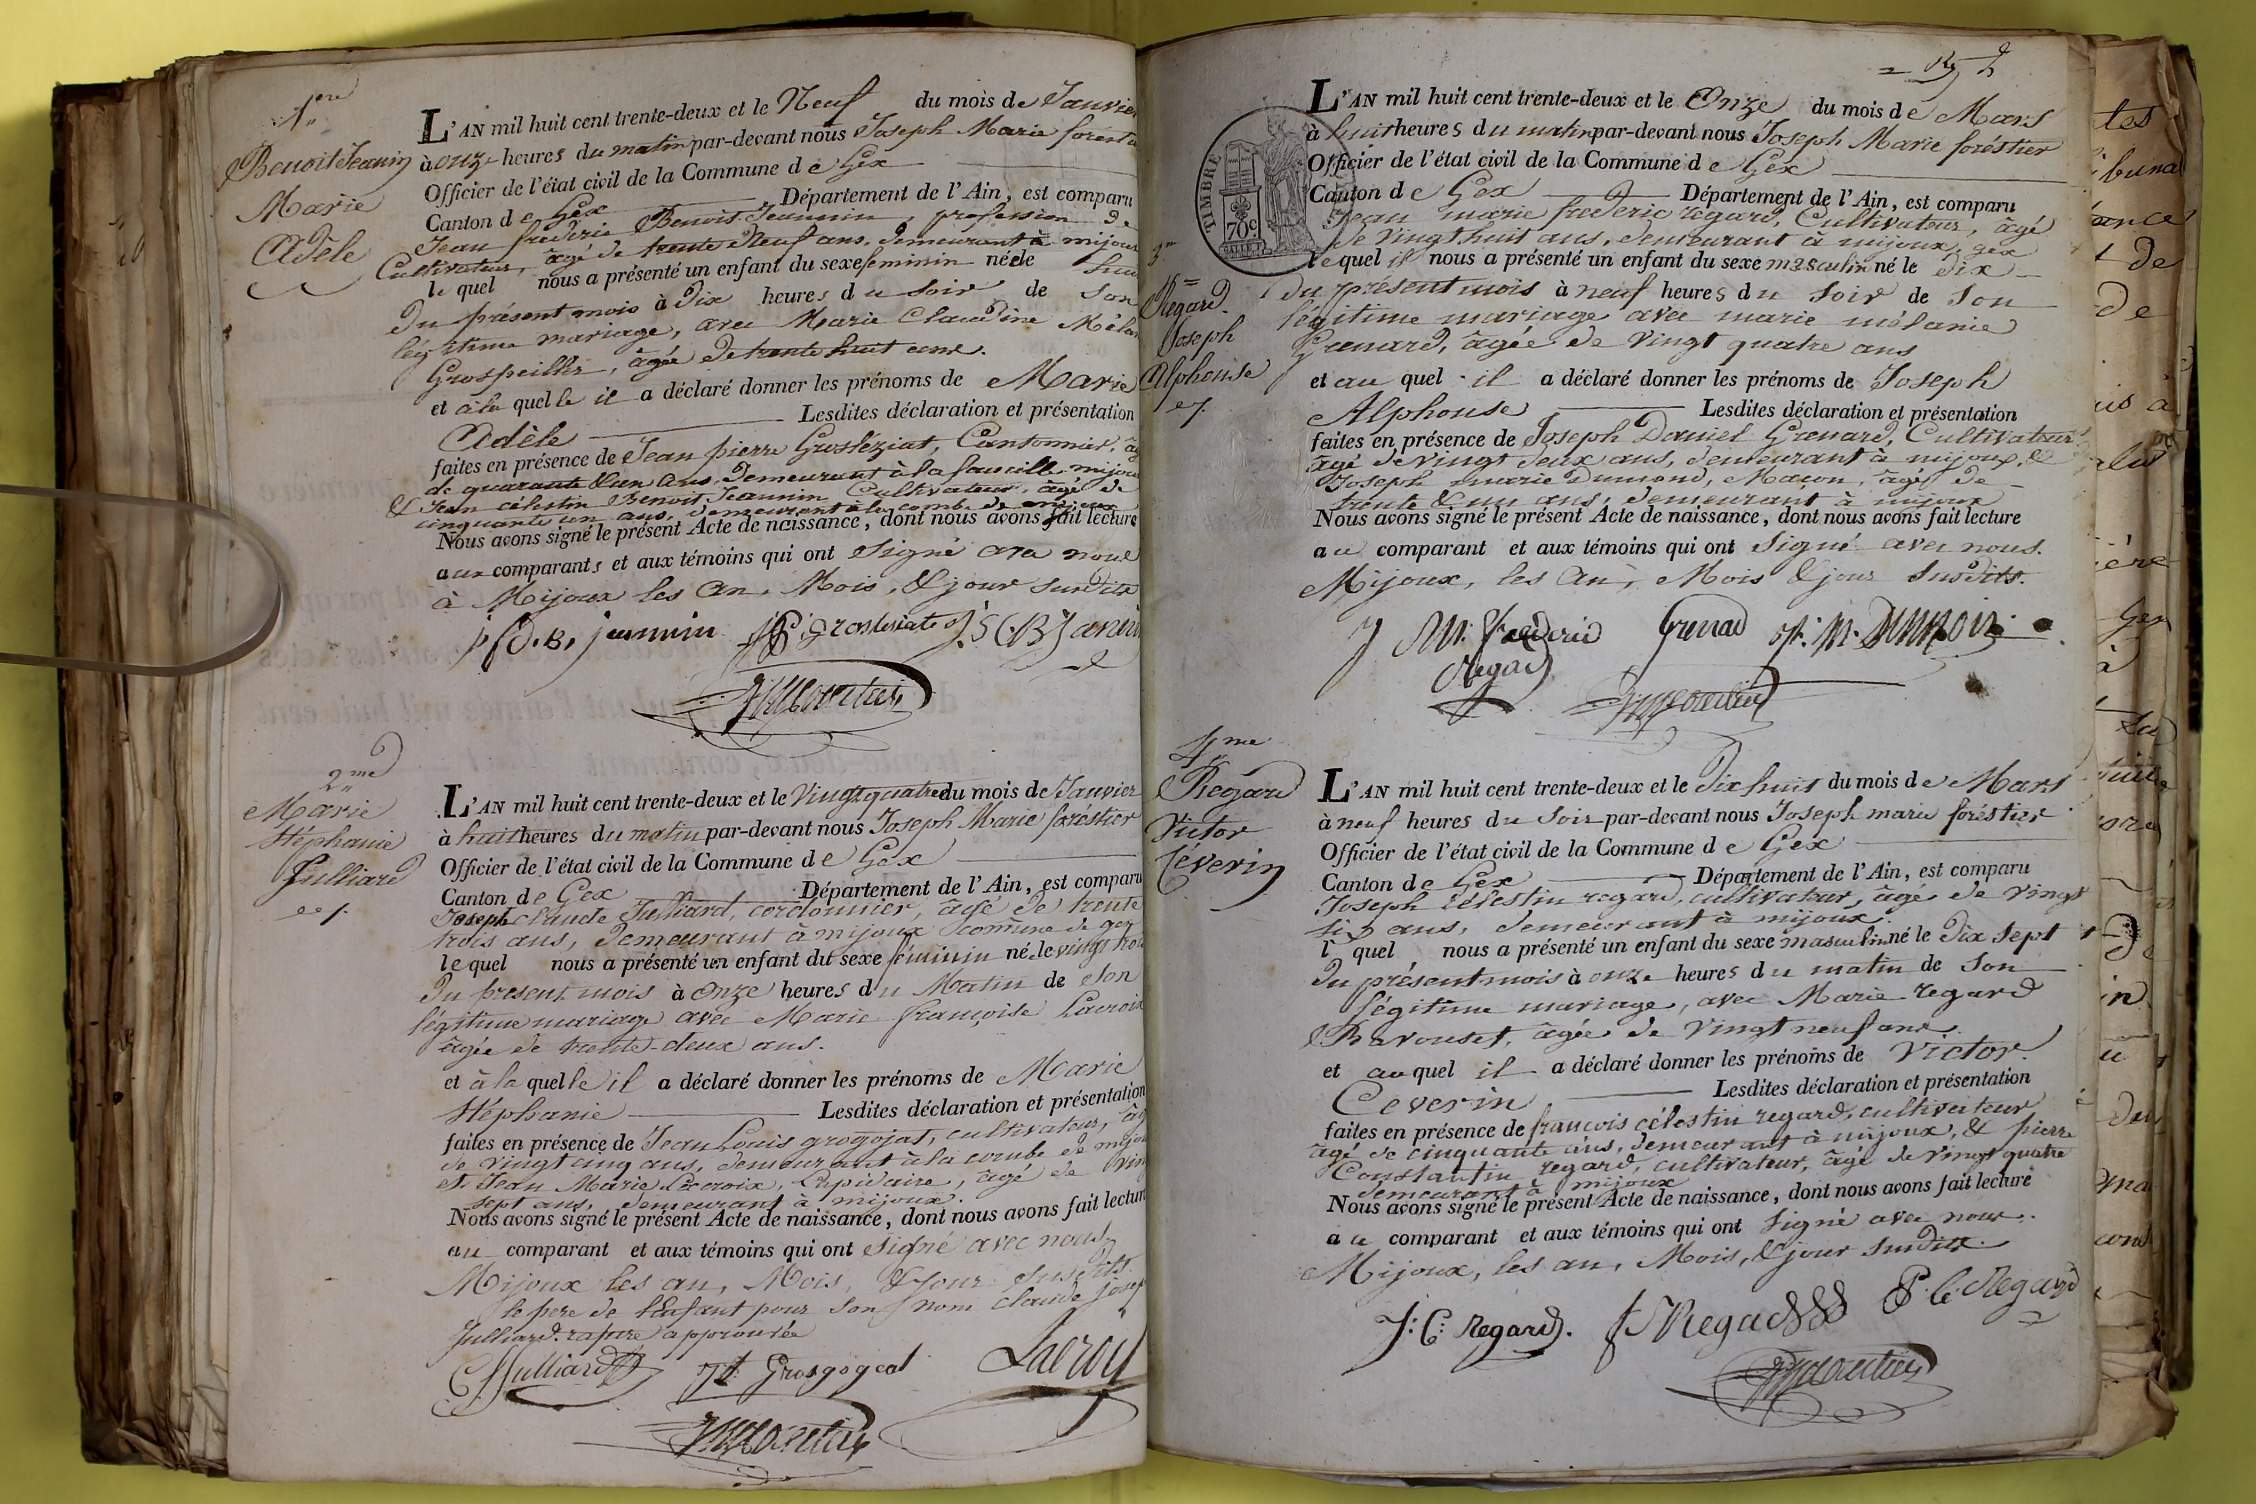 1ere
Benoit Jeannin
Marie
Adèle
L'AN mil huit cent trente-deux et le Neuf du mois de Janvier
à onze heures du matin par-devant nous Joseph Marie
Officier de l'état civil de la Commune de Gex
Canton de Gex Département de l'Ain, est comparu
Jean frédéric Benoit Jeannin, profession de
Cultivateur, âgé de trente Neuf ans, demeurant à mijoux
le quel nous a présenté un enfant du sexe feminin née le
du présent mois à Dix heures du Soir de Son
légitime mariage, avec Marie Claudine
Grospeiller, âgée de trente huit ans.
et à la quelle il a déclaré donner les prénoms de Marie
Adèle Lesdites déclaration et présentation
faites en présence de Jean pierre Grosléziat, Cantonnier,
de quarante & un ans, demeurant à la faucille mijoux
& Jean célestin Benoit Jeannin Cultivateur, âgé de
cinquante un ans, demeurant à la combe de mijoux
Nous avons signé le présent Acte de naissance, dont nous avons fait lecture
aux comparants et aux témoins qui ont Signé avec nous
à Mijoux les an, Mois, & jour Susdits
j f d. B. jeannin
2me
Marie
Stéphanie
Julliard
L'AN mil huit cent trente-deux et le Vingt quatre du mois de Janvier
à huit heures du matin par-devant nous Joseph Marie foréstier
Officier de l'état civil de la Commune de Gex
Canton de Gex Département de l'Ain, est comparu
Joseph claude Julliard, cordonnier, âgé de trente
trois ans, demeurant à mijoux comune de gex
le quel nous a présenté un enfant du sexe féminin né le vingt trois
du present mois à Onze heures du Matin de Son
légitime mariage avec Marie françoise Lacroix
âgée de trente-deux ans.
et à la quelle il a déclaré donner les prénoms de Marie
Stéphanie Lesdites déclaration et présentation
faites en présence de Jean Louis grogojat, cultivateur, âgé
de vingt cinq ans, demeurant à la combe de mijoux
et Jean Marie Lacroix, Lapidaire, âgé de vingt
sept ans, demeurant à mijoux.
Nous avons signé le présent Acte de naissance, dont nous avons fait lecture
au comparant et aux témoins qui ont Signé avec nous
Mijoux les an, Mois, & Jour Susdits.
le pere de l'Enfant pour Son nom claude joseph
Julliard. rature approuvée
Julliard Grosgogeat Lacroix
L'AN mil huit cent trente-deux et le Onze du mois de Mars
à huit heures du matin par-devant nous Joseph Marie foréstier
Officier de l'état civil de la Commune de Gex
Canton de Gex Département de l'Ain, est comparu
Jean marie frederic regard, Cultivateur, âgé
de vingt huit ans, demeurant à mijoux, gex
le quel il nous a présenté un enfant du sexe masculin né le dix
du présent mois à neuf heures du Soir de Son
légitime mariage avec marie mélanie
Grenard, âgée de Vingt quatre ans
et au quel il a déclaré donner les prénoms de Joseph
Alphonse Lesdites déclaration et présentation
faites en présence de Joseph Daniel Grenard, Cultivateur
âgé de vingt deux ans, demeurant à mijoux, &
Joseph marie Dumond, Maçon, âgé de
trente & un ans, demeurant à mijoux
Nous avons signé le présent Acte de naissance, dont nous avons fait lecture
au comparant et aux témoins qui ont Signé avec nous.
Mijoux, les an, Mois & jour Susdits.
TIMBRE
70c
3me
Regard
Joseph
Alphonse
J M. fredéric Regard Grenard
4me
Regard
Victor
Céverin
L'AN mil huit cent trente-deux et le Dix huit du mois de Mars
à neuf heures du Soir par-devant nous Joseph marie foréstier
Officier de l'état civil de la Commune de Gex
Canton de Gex Département de l'Ain, est comparu
Joseph célestin regard, cultivateur, âgé de vingt
six ans, demeurant à mijoux.
l quel, nous a présenté un enfant du sexe masculin né le Dix Sept
du présent mois à onze heures du matin de Son
légitime mariage, avec Marie regard
Ravouset, âgée de Vingt neuf ans.
et au quel il a déclaré donner les prénoms de Victor.
Ceverin Lesdites déclaration et présentation
faites en présence de francois célestin regard, cultivateur
âgé de cinquante ans, demeurant à mijoux, & pierre
Constantin regard, cultivateur, âgé de vingt quatre
demeurant à mijoux
Nous avons signé le présent Acte de naissance, dont nous avons fait lecture
au comparant et aux témoins qui ont Signé avec nous.
Mijoux, les an, Mois, & jour Susdits.
J: C: Regard. P. C. Regard